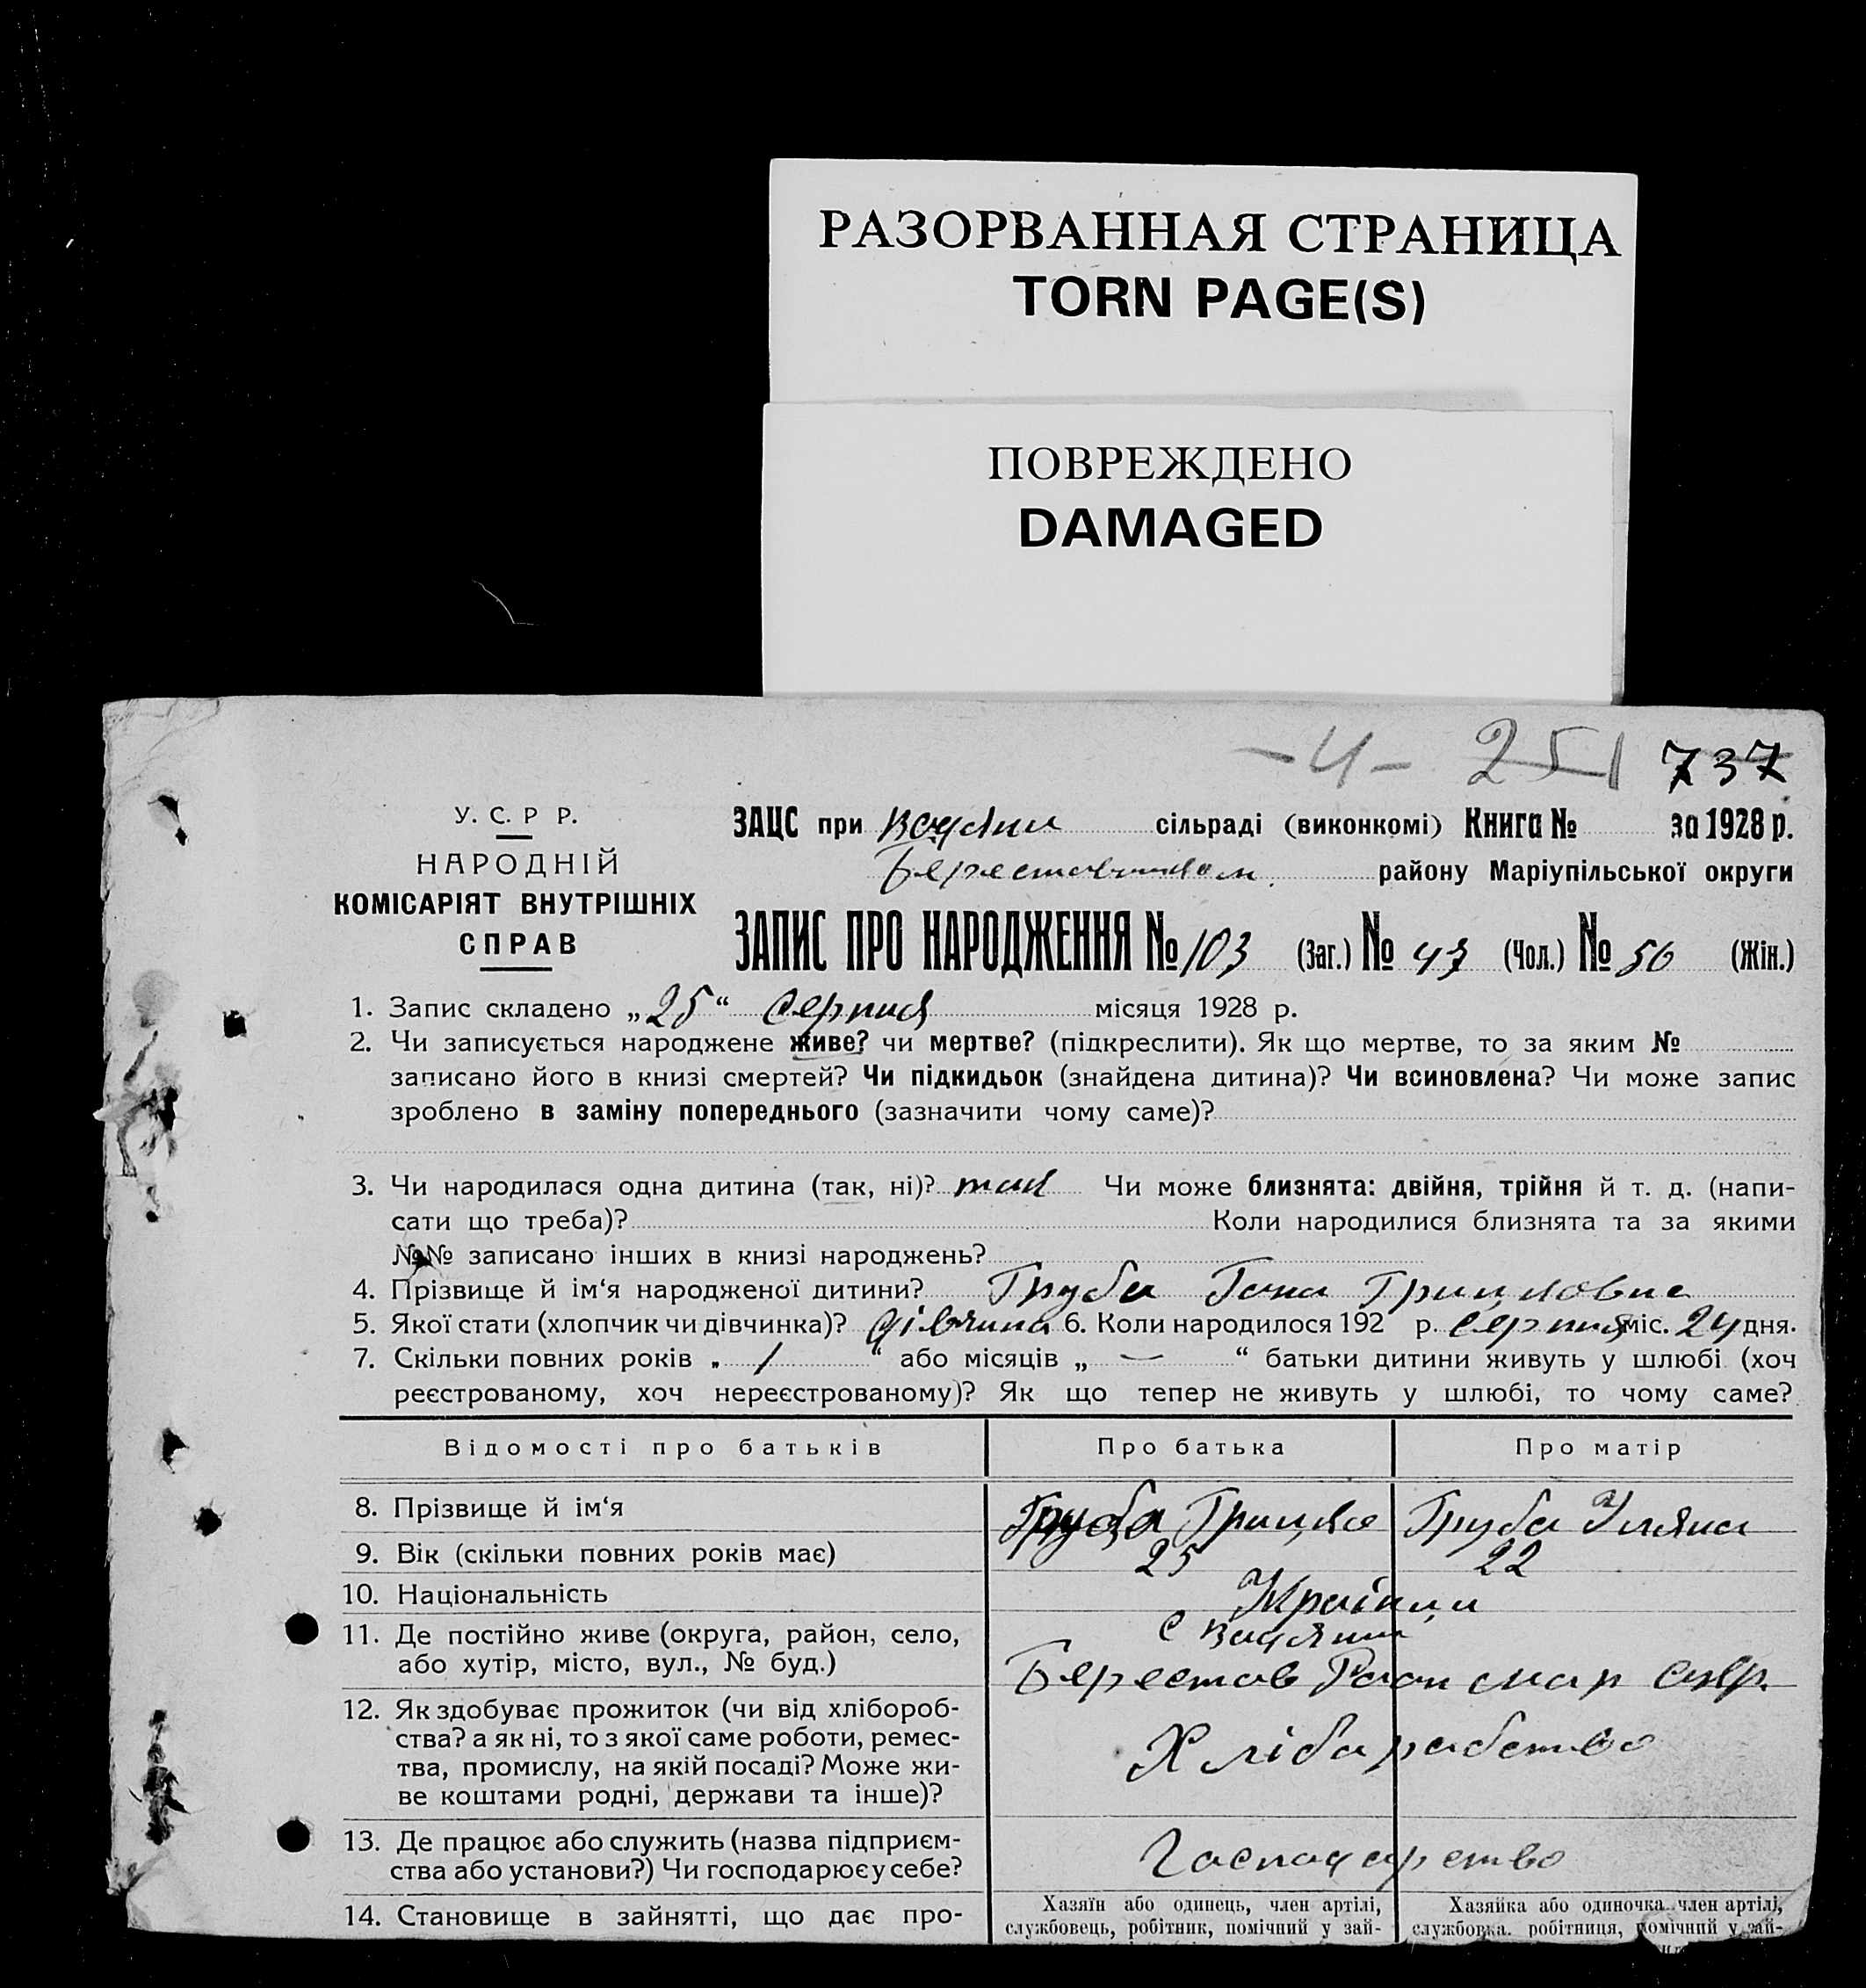 РАЗОРВАННАЯ СТРАНИЦА
TORN PAGE(S)
ПОВРЕЖДЕНО
DAMAGED
-4- 251 737
У. С. Р Р.
НАРОДНІЙ
КОМІСАРІЯТ ВНУТРІШНІХ
СПРАВ
ЗАЦС при Водяни сільраді (виконкомі) Книга № за 1928 р.
району Маріупільської округи
ЗАПИС ПРО НАРОДЖЕННЯ № 103 (Заг.) № 47 (Чол.) № 56 (Жін.)
1. Запис складено „25“ Серпня місяця 1928 р.
2. Чи записується народжене живе? чи мертве? (підкреслити). Як що мертве, то за яким №
записано його в книзі смертей? Чи підкидьок (знайдена дитина)? Чи всиновлена? Чи може запис
зроблено в заміну попереднього (зазначити чому саме)?
3. Чи народилася одна дитина (так, ні)? так Чи може близнята: двійня, трійня й т. д. (напи-
сати що треба)? Коли народилися близнята та за якими
№№ записано інших в книзі народжень?
4. Прізвище й ім‘я народженої дитини? Груба Гана Грицковна
5. Якої стати (хлопчик чи дівчинка)? дівчина 6. Коли народилося 192 р. серпня міс. 24 дня.
7. Скільки повних років „ 1 “ або місяців „ — “ батьки дитини живуть у шлюбі (хоч
реєстрованому, хоч нереєстрованому)? Як що тепер не живуть у шлюбі, то чому саме?
Відомості про батьків Про батька Про матір
8. Прізвище й ім‘я Груба Грицько Груба Уляна
9. Вік (скільки повних років має) 25 22
10. Національність Українци
11. Де постійно живе (округа, район, село, с Водяни
або хутір, місто, вул., № буд.) Берестов Район мар окр.
12. Як здобуває прожиток (чи від хлібороб-
ства? а як ні, то з якої саме роботи, ремес- Хлібарабство
тва, промислу, на якій посаді? Може жи-
ве коштами родні, держави та інше)?
13. Де працює або служить (назва підприєм- Господарство
ства або установи?) Чи господарює у себе?
14. Становище в зайнятті, що дає про- Хазяїн або одинець, член артілі, Хазяйка або одиночка член артілі,
службовець, робітник, помічний у зай- службовка. робітниця, помічний у зай-